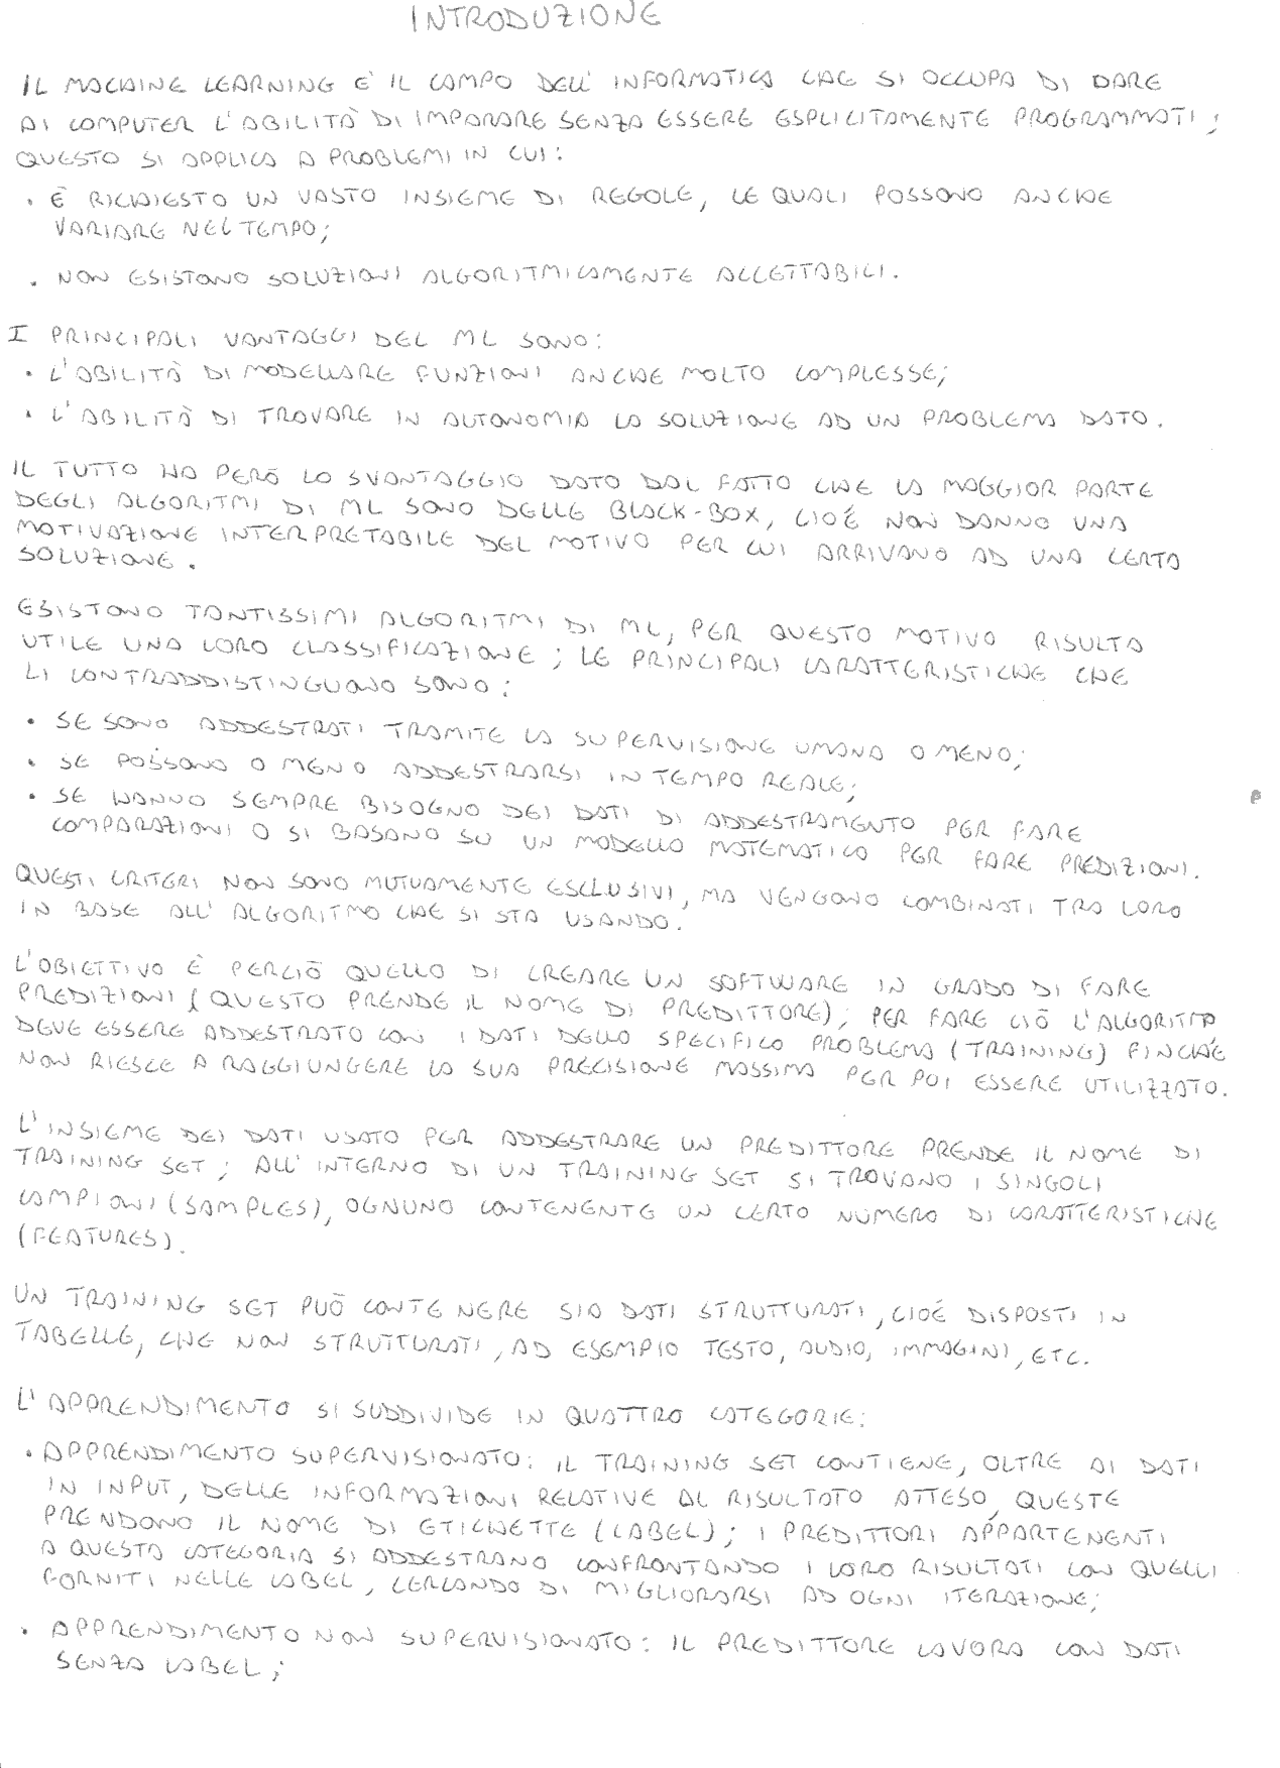 INTRODUZIONE
IL MACHINE LEARNING E' IL CAMPO DELL' INFORMATICA CHE SI OCCUPA DI DARE
AI COMPUTER L'ABILITÀ DI IMPARARE SENZA ESSERE ESPLICITAMENTE PROGRAMMATI;
QUESTO SI APPLICA A PROBLEMI IN CUI:
• È RICHIESTO UN VASTO INSIEME DI REGOLE, LE QUALI POSSONO ANCHE
VARIARE NEL TEMPO;
• NON ESISTONO SOLUZIONI ALGORITMICAMENTE ACCETTABILI.
I PRINCIPALI VANTAGGI DEL ML SONO:
• L'ABILITÀ DI MODELLARE FUNZIONI ANCHE MOLTO COMPLESSE;
• L'ABILITÀ DI TROVARE IN AUTONOMIA LA SOLUZIONE AD UN PROBLEMA DATO.
IL TUTTO HA PERÒ LO SVANTAGGIO DATO DAL FATTO CHE LA MAGGIOR PARTE
DEGLI ALGORITMI DI ML SONO DELLE BLACK-BOX, CIOÈ NON DANNO UNA
MOTIVAZIONE INTERPRETABILE DEL MOTIVO PER CUI ARRIVANO AD UNA CERTA
SOLUZIONE.
ESISTONO TANTISSIMI ALGORITMI DI ML, PER QUESTO MOTIVO RISULTA
UTILE UNA LORO CLASSIFICAZIONE; LE PRINCIPALI CARATTERISTICHE CHE
LI CONTRADDISTINGUONO SONO:
• SE SONO ADDESTRATI TRAMITE LA SUPERVISIONE UMANA O MENO;
• SE POSSONO O MENO ADDESTRARSI IN TEMPO REALE;
• SE HANNO SEMPRE BISOGNO DEI DATI DI ADDESTRAMENTO PER FARE
COMPARAZIONI O SI BASANO SU UN MODELLO MATEMATICO PER FARE PREDIZIONI.
QUESTI CRITERI NON SONO MUTUAMENTE ESCLUSIVI, MA VENGONO COMBINATI TRA LORO
IN BASE ALL' ALGORITMO CHE SI STA USANDO.
L'OBIETTIVO È PERCIÒ QUELLO DI CREARE UN SOFTWARE IN GRADO DI FARE
PREDIZIONI (QUESTO PRENDE IL NOME DI PREDITTORE); PER FARE CIÒ L'ALGORITMO
DEVE ESSERE ADDESTRATO CON I DATI DELLO SPECIFICO PROBLEMA (TRAINING) FINCHÈ
NON RIESCE A RAGGIUNGERE LA SUA PRECISIONE MASSIMA PER POI ESSERE UTILIZZATO.
L'INSIEME DEI DATI USATO PER ADDESTRARE UN PREDITTORE PRENDE IL NOME DI
TRAINING SET; ALL'INTERNO DI UN TRAINING SET SI TROVANO I SINGOLI
CAMPIONI (SAMPLES), OGNUNO CONTENENTE UN CERTO NUMERO DI CARATTERISTICHE
(FEATURES).
UN TRAINING SET PUÒ CONTENERE SIA DATI STRUTTURATI, CIOÈ DISPOSTI IN
TABELLE, CHE NON STRUTTURATI, AD ESEMPIO TESTO, AUDIO, IMMAGINI, ETC.
L'APPRENDIMENTO SI SUDDIVIDE IN QUATTRO CATEGORIE:
• APPRENDIMENTO SUPERVISIONATO: IL TRAINING SET CONTIENE, OLTRE AI DATI
IN INPUT, DELLE INFORMAZIONI RELATIVE AL RISULTATO ATTESO, QUESTE
PRENDONO IL NOME DI ETICHETTE (LABEL); I PREDITTORI APPARTENENTI
A QUESTA CATEGORIA SI ADDESTRANO CONFRONTANDO I LORO RISULTATI CON QUELLI
FORNITI NELLE LABEL, CERCANDO DI MIGLIORARSI AD OGNI ITERAZIONE;
• APPRENDIMENTO NON SUPERVISIONATO: IL PREDITTORE LAVORA CON DATI
SENZA LABEL;